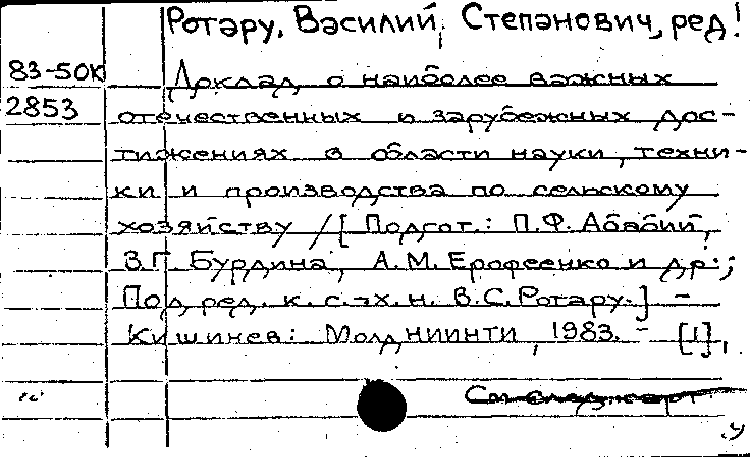 Ротару, Василий Степанович, ред!
83-50К Доклад о наиболее важных
2853 отечественных и зарубежных дос-
тижениях в области науки, техни-
ки и производства по сельскому
хозяйству / [ Подгот.: П.Ф. Абабий,
В.Г. Бурдина, А.М. Ерофеенко и др.;
Под ред. к. с.-х. н. В.С. Ротару.] -
Кишинев: МолдНИИНТИ, 1983. - [1],
См след карт